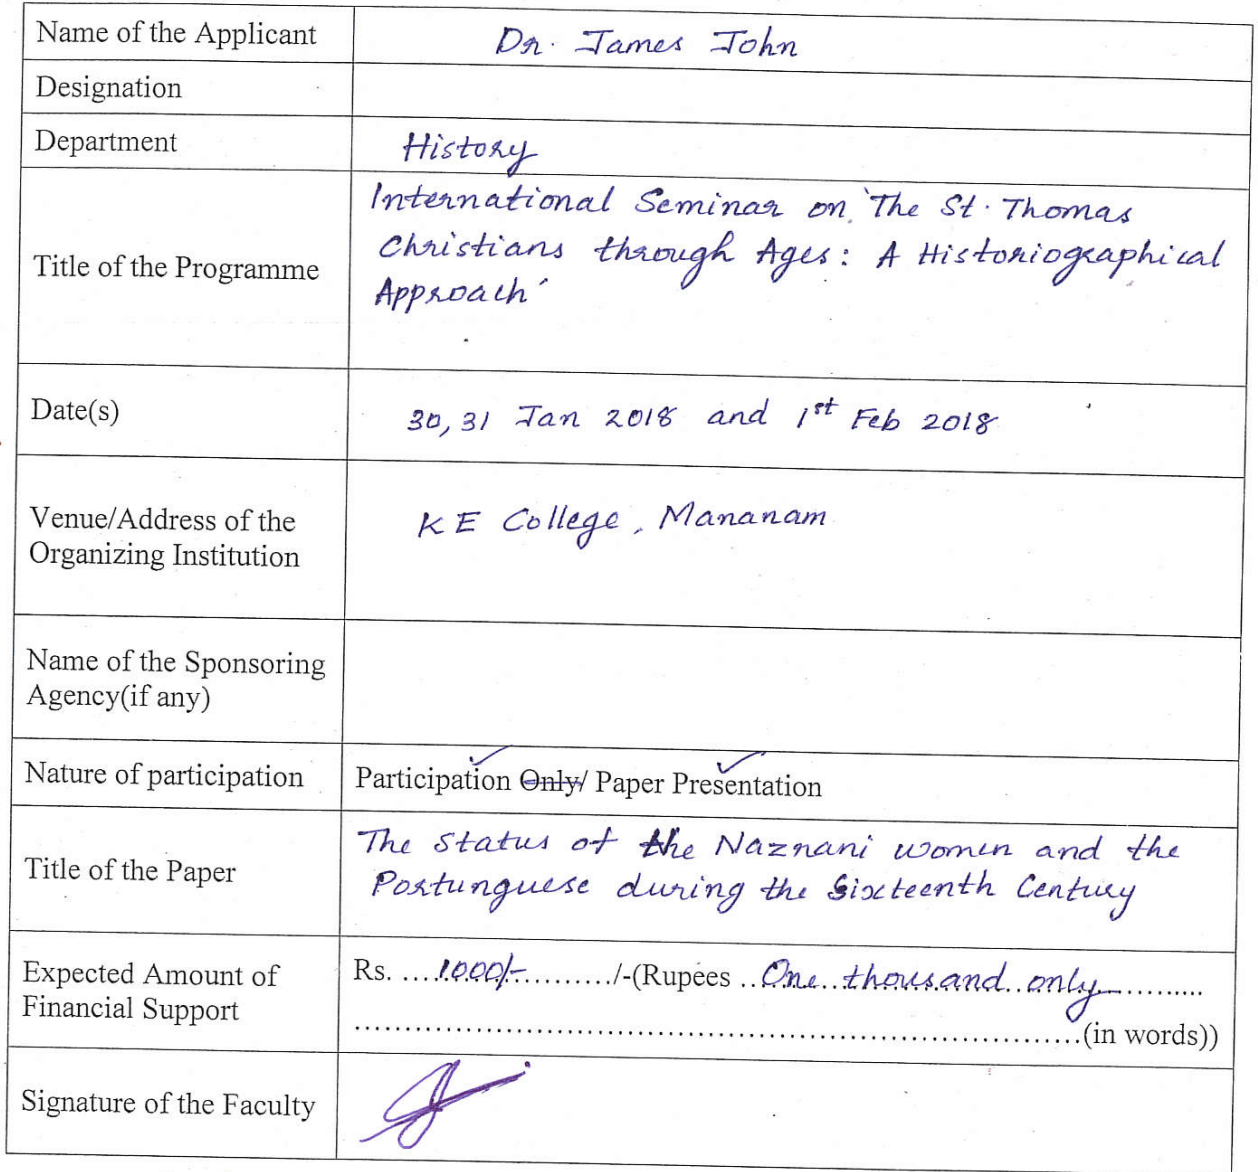 Name of the Applicant Dr. James John
Designation
Department History
Title of the Programme
International Seminar on 'The St. Thomas
Christians through Ages: A Historiographical
Approach'
Date(s) 30, 31 Jan 2018 and 1st Feb 2018
Venue/Address of the
Organizing Institution
KE College, Mananam
Name of the Sponsoring
Agency(if any)
Nature of participation Participation Only/ Paper Presentation
Title of the Paper
The Status of the Naznani women and the
Portunguese during the Sixteenth Century
Expected Amount of
Financial Support
Rs. ....1000/-........../-(Rupees ..One..thousand..only..........
.................................................................(in words))
Signature of the Faculty